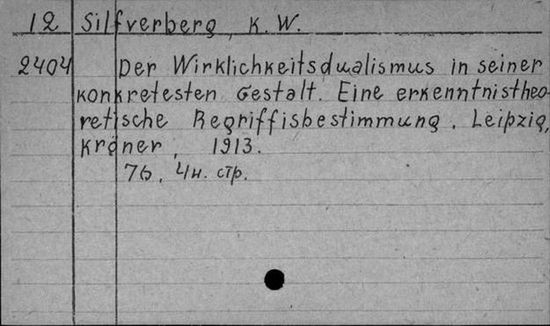 12 Silfverberg, K. W.
2404 Der Wirklichkeitsdualismus in seiner
konkretesten Gestalt. Eine erkenntnistheo-
retische Begriffisbestimmung. Leipzig,
Kröner, 1913.
76, 4н. стр.